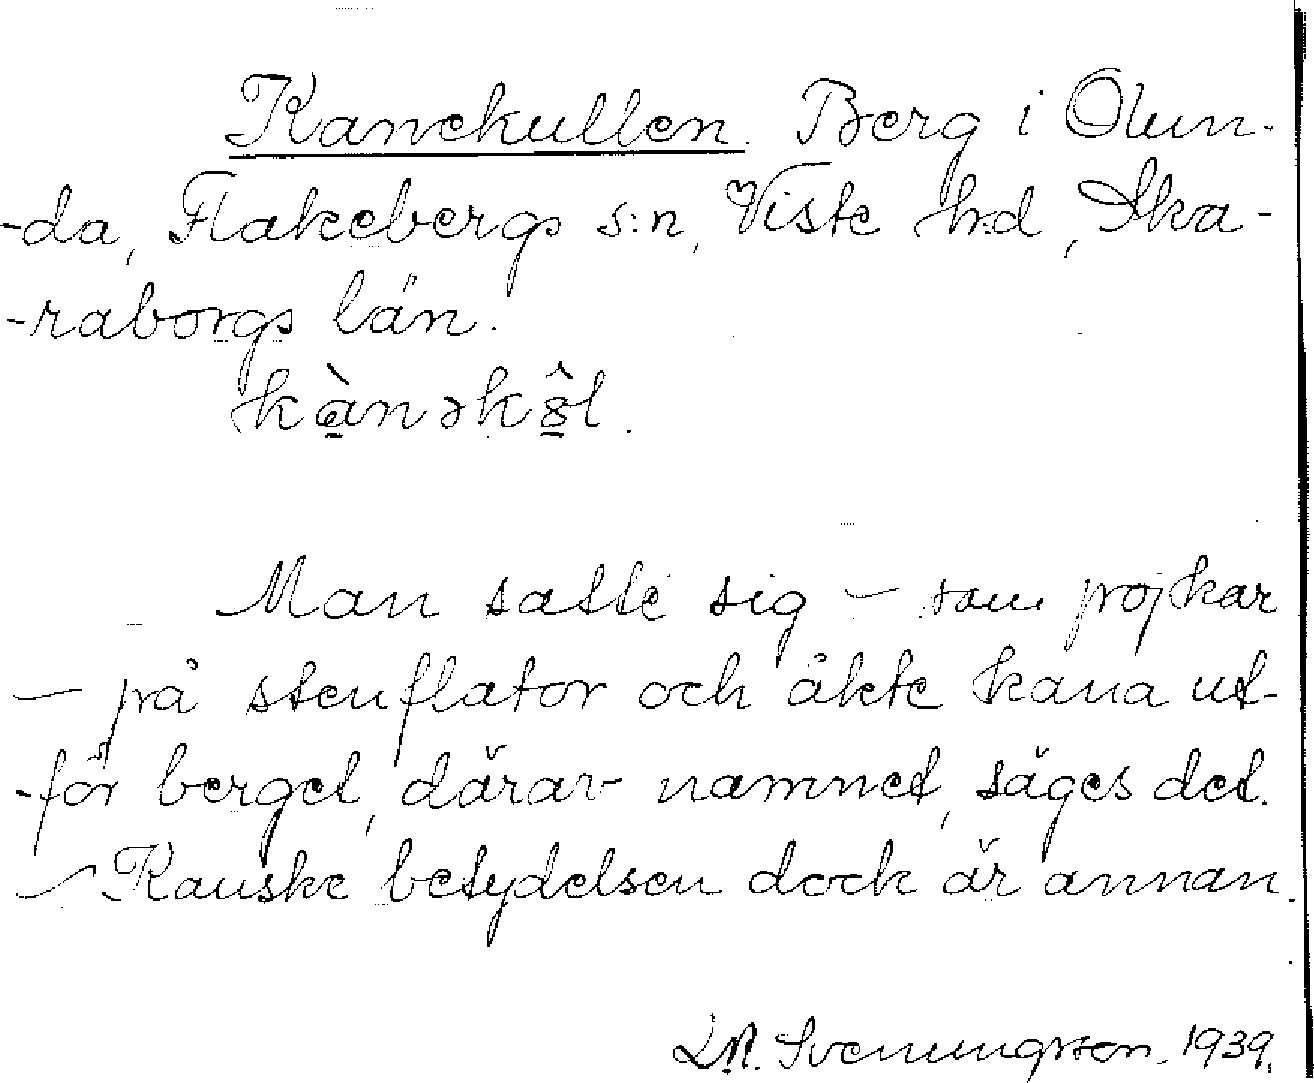 Kanekullen. Berg i Olun-
-da, Flakebergs s:n, Viste h:d, Ska-
-raborgs län.
kànəkôl.
Man satte sig - som pojkar
- på stenflator och åkte kana ut-
-för berget, därav namnet, säges det.
- Kanske betydelsen dock är annan.
Svenungsson. 1939.